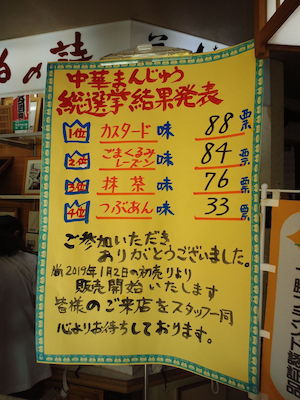 中華まんじゅう
総選挙結果発表
1位 カスタード味 88票
2位 ごまくるみレーズン味 84票
3位 抹茶味 76票
4位 つぶあん味 33票
ご参加いただき
ありがとうございました。
2019年1月2日の初売りより
販売開始いたします
皆様のご来店をスタッフ一同
心よりお待ちしております。